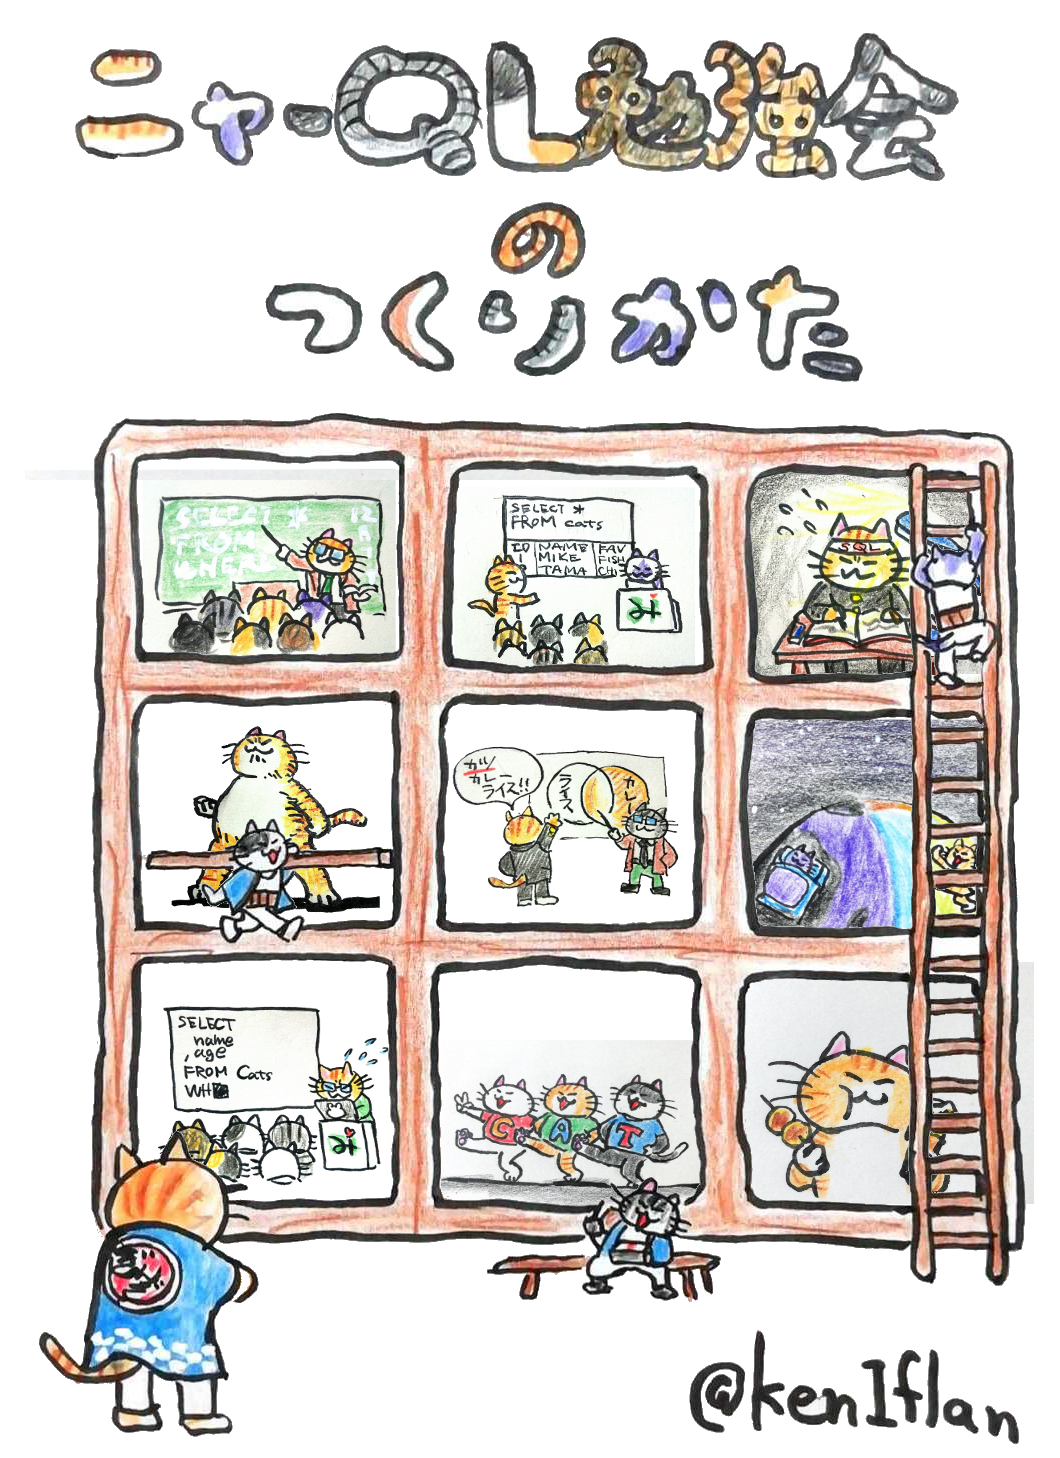 ニャーQL勉強会
の
つくりかた
SELECT *
FROM
WHERE
12
SELECT *
FROM cats
ID NAME FAV
1 MIKE FISH
TAMA CHI
み
SQL
カツ
カレー
ライス!!
ライス
カレー
SELECT
name
, age
FROM Cats
WH
み
C A T
@kenIflan